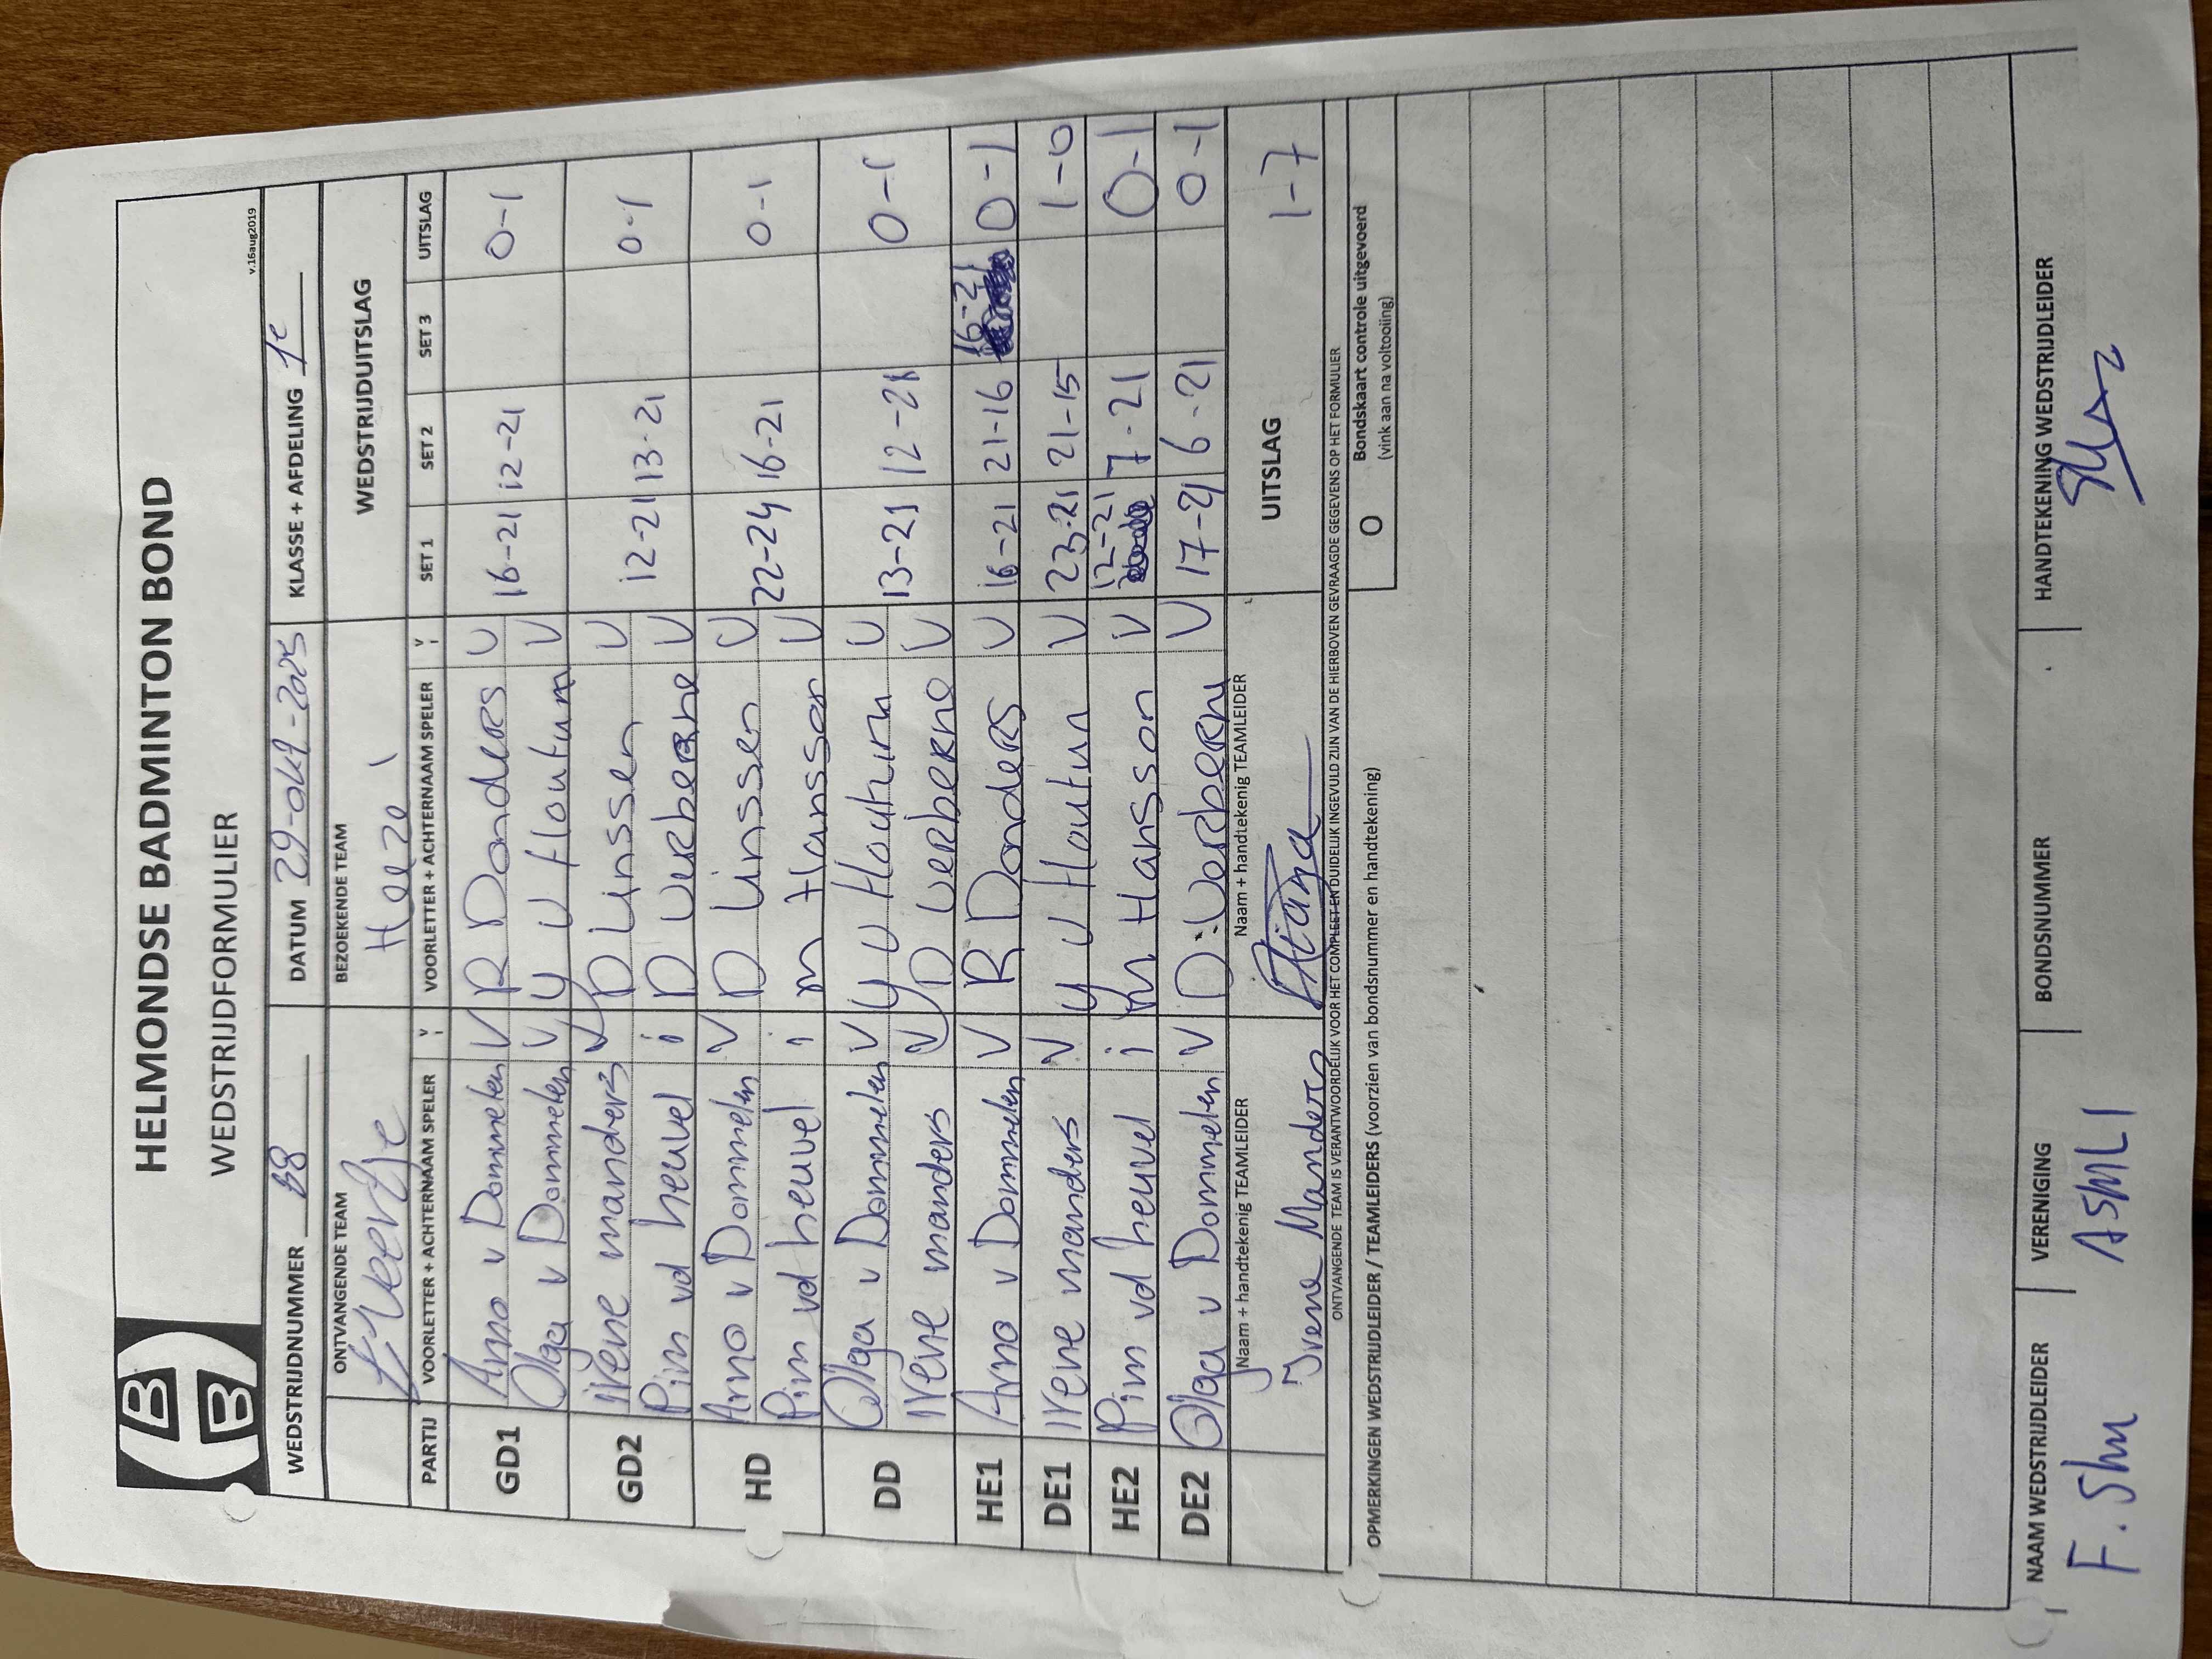 HELMONDSE BADMINTON BOND
WEDSTRIJDFORMULIER
v.16aug2019
WEDSTRIJDNUMMER 38 DATUM 29-okt-2025 KLASSE + AFDELING 1e
ONTVANGENDE TEAM BEZOEKENDE TEAM WEDSTRIJDUITSLAG
't Veertje Heeze 1
PARTIJ VOORLETTER + ACHTERNAAM SPELER Y VOORLETTER + ACHTERNAAM SPELER Y SET 1 SET 2 SET 3 UITSLAG
GD1 Arno v Dommelen V R Donders V 16-21 12-21 0-1
Olga v Dommelen V Y V Houtum V
GD2 Irene manders V D Linssen V 12-21 13-21 0-1
Pim vd heuvel i D Verberne V
HD Arno v Dommelen V D Linssen V 22-24 16-21 0-1
Pim vd heuvel i m Hansson V
DD Olga v Dommelen V Y V Houtum V 13-21 12-21 0-1
Irene manders V D Verberne V
HE1 Arno v Dommelen V R Donders V 16-21 21-16 16-21 0-1
DE1 Irene manders V Y V Houtun V 23-21 21-15 1-0
HE2 Pim vd heuvel i m Hansson V 12-21 7-21 0-1
DE2 Olga v Dommelen V D Verberne V 17-21 6-21 0-1
Naam + handtekenig TEAMLEIDER Naam + handtekenig TEAMLEIDER UITSLAG 1-7
Irene Manders
ONTVANGENDE TEAM IS VERANTWOORDELIJK VOOR HET COMPLEET EN DUIDELIJK INGEVULD ZIJN VAN DE HIERBOVEN GEVRAAGDE GEGEVENS OP HET FORMULIER
OPMERKINGEN WEDSTRIJDLEIDER / TEAMLEIDERS (voorzien van bondsnummer en handtekening)
O Bondskaart controle uitgevoerd
(vink aan na voltooiing)
NAAM WEDSTRIJDLEIDER VERENIGING BONDSNUMMER HANDTEKENING WEDSTRIJDLEIDER
F. Shm ASML1